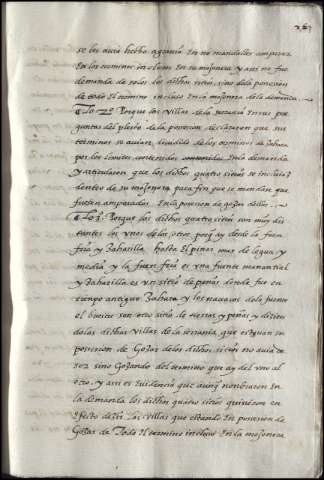 se les auia hecho agrauio en no mandalles amparar
en los terminos inclusos en su mojonera y assi no fue
demanda de solos los dichos sitios, sino de la posesion
de todo el termino incluso en la mojonera de la demanda
Lo 2º Porque las Villas de la serrania en sus pre
guntas del pleito de la posesion declararon que sus
terminos se auian diuidido de los terminos de Zahara
por los limites contenidos en la demanda
y articularon que los dichos quatro sitios se incluian
dentro de su mojonera para fin que se mandase que
fuesen amparados en la posesion de gozar dellos
Lo 3º Porque los dichos quatro sitios son muy dis
tantes los unos de los otros porque ay desde la fuen
fria y Zaharilla hasta el pinar mas de legua y
media y la fuen fria es vna fuente manantial
y Zaharilla es vn sitio de peñas donde fue en
tiempo antiguo Zahara y los nauazos de la fuente
el bueite son otro sitio de tierras y peñas y dizien
do las dichas villas de la serrania, que estauan en
posesion de Gozar de los dichos sitios no auia de
ser sino Gozando del termino que ay del vno al
otro, y assi es euidencia que aunque nombraron en
la demanda los dichos quatro sitios quisieron en
efecto dezir las villas que estando en posesion de
Gozar de todo el termino incluso en la mojonera